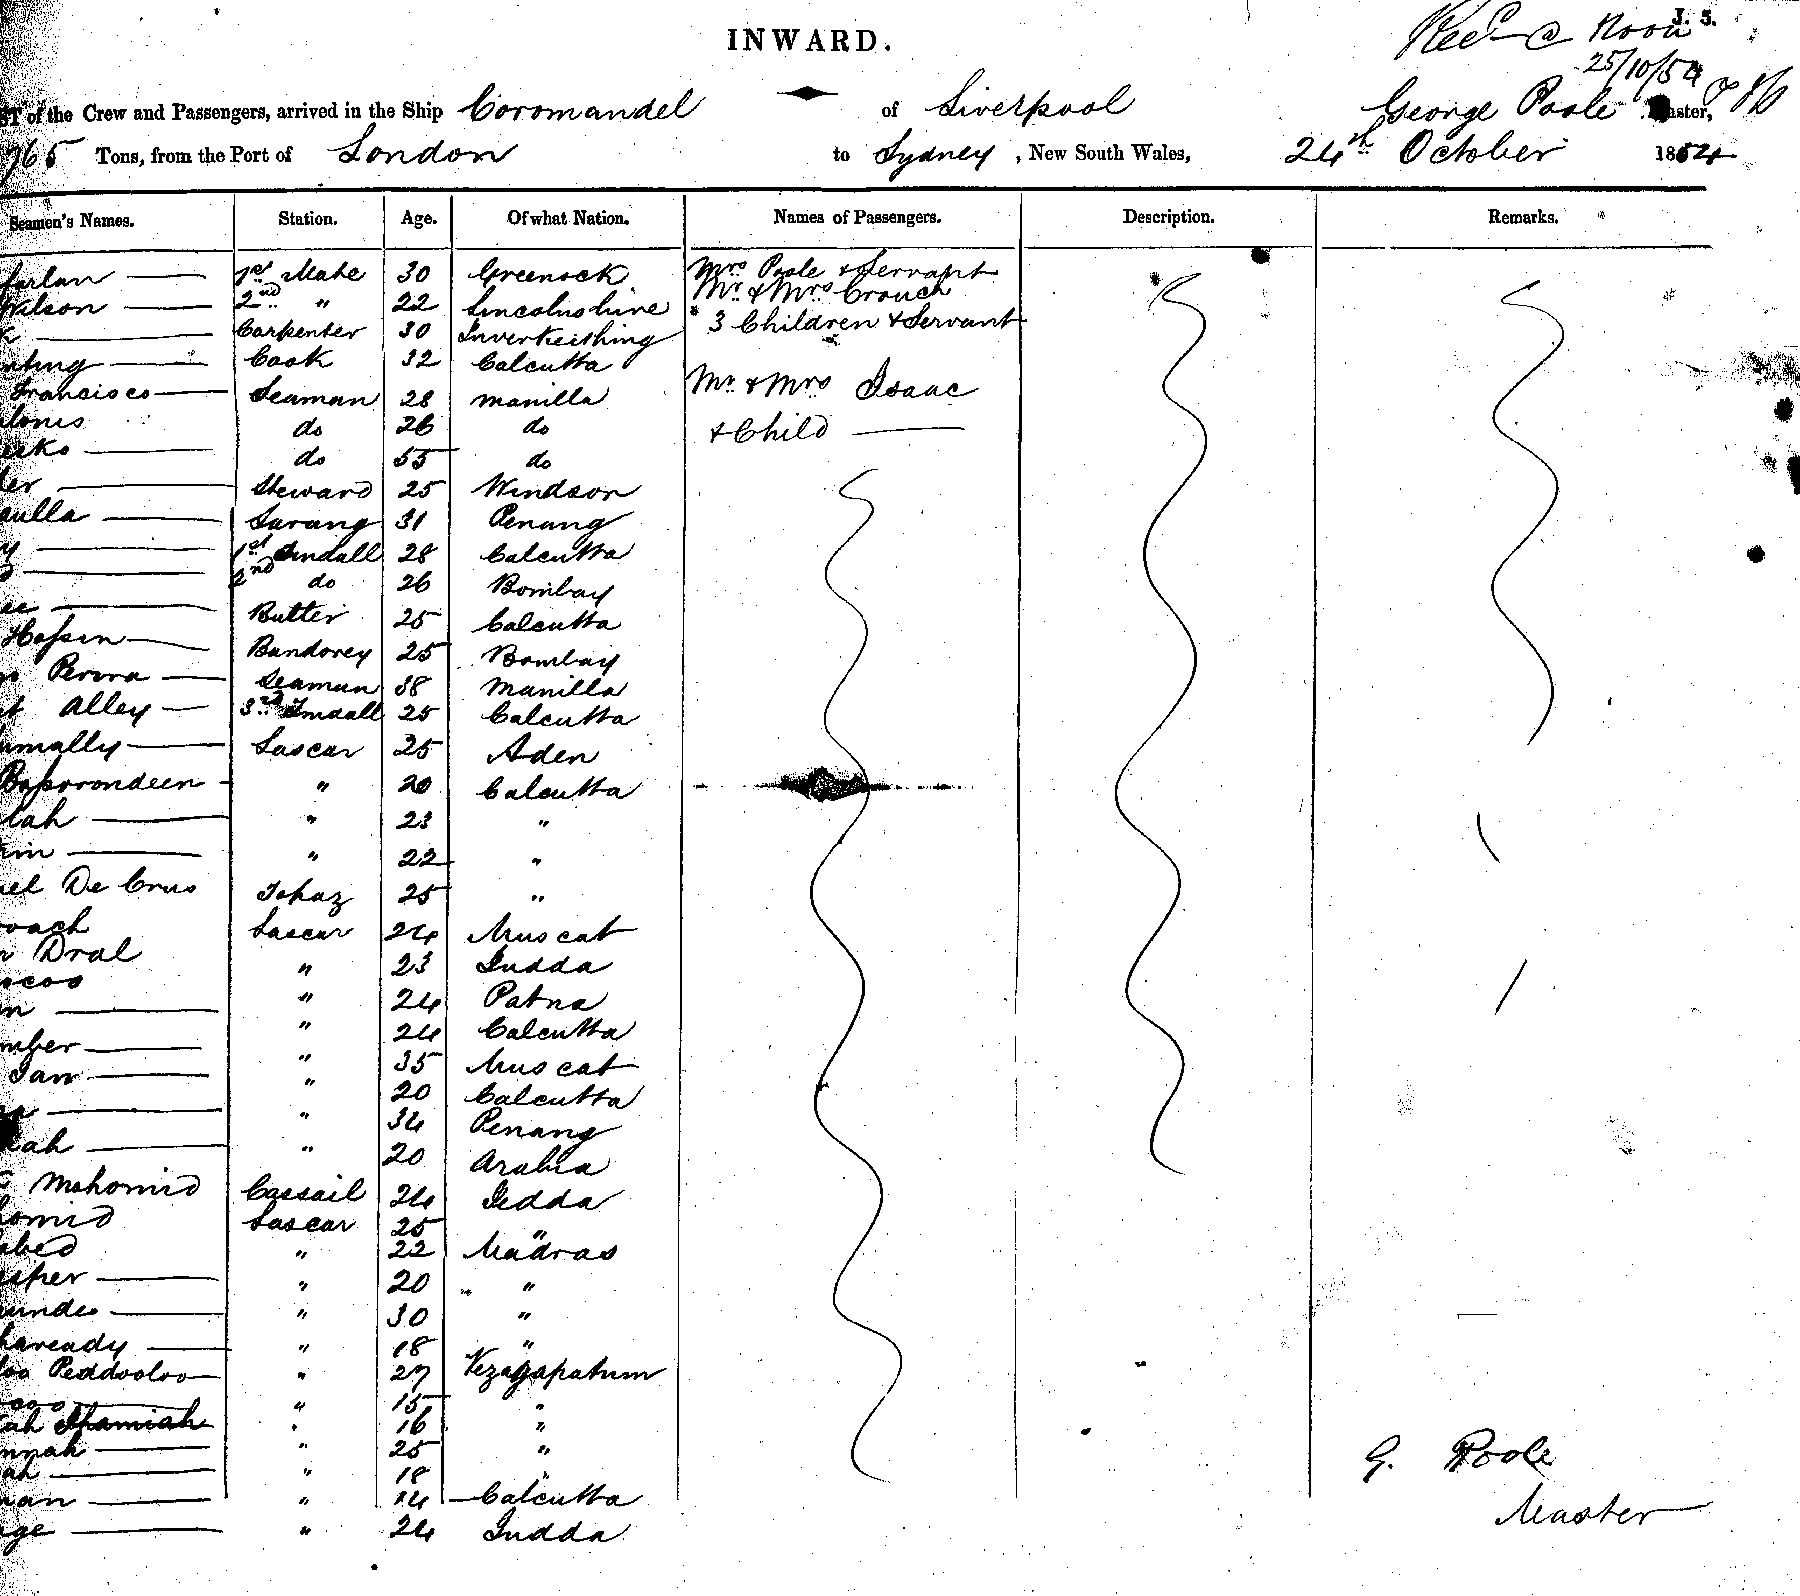 J. 5.
INWARD.
Recd @ Noon
25/10/54
of the Crew and Passengers, arrived in the Ship Coromandel of Liverpool George Poole Master,
965 Tons, from the Port of London to Sydney, New South Wales, 24th October 1854
Seamen's Names. Station. Age. Of what Nation. Names of Passengers. Description. Remarks.
farlan 1st Mate 30 Greenock Mrs Poole & Servant
Wilson 2nd " 22 Lincolnshire Mr & Mrs Crouch
Carpenter 30 Inverkeithing 3 Children & Servant
nting Cook 32 Calcutta
Francisco Seaman 28 Manilla Mr & Mrs Isaac
lonis do 26 do & Child
erks do 55 do
ler Steward 25 Windsor
aulla Sarang 31 Penang
y 1st Tindall 28 Calcutta
2nd do 26 Bombay
Butler 25 Calcutta
Hossin Bandorey 25 Bombay
Perira Seaman 38 Manilla
Alley 3rd Tindall 25 Calcutta
umally Lascar 25 Aden
Bassorondeen " 20 Calcutta
lah " 23 "
rin " 22 "
uel De Crus Topaz 25 "
roach Lascar 24 Muscat
n Dral " 23 Judda
iscos " 24 Patna
n " 24 Calcutta
mber " 35 Muscat
Jan " 20 Calcutta
" 34 Penang
lah " 20 Arabia
Mahomid Cassail 24 Jedda
homid Lascar 25 "
abed " 22 Madras
sher " 20 "
unde " 30 "
haready " 18 "
loo Peddooloo " 27 Vezagapatum
" 15 "
ah Shamiah " 16 "
nnah " 25 "
ah " 18 "
man " 14 Calcutta
ge " 24 Judda
G. Poole
Master